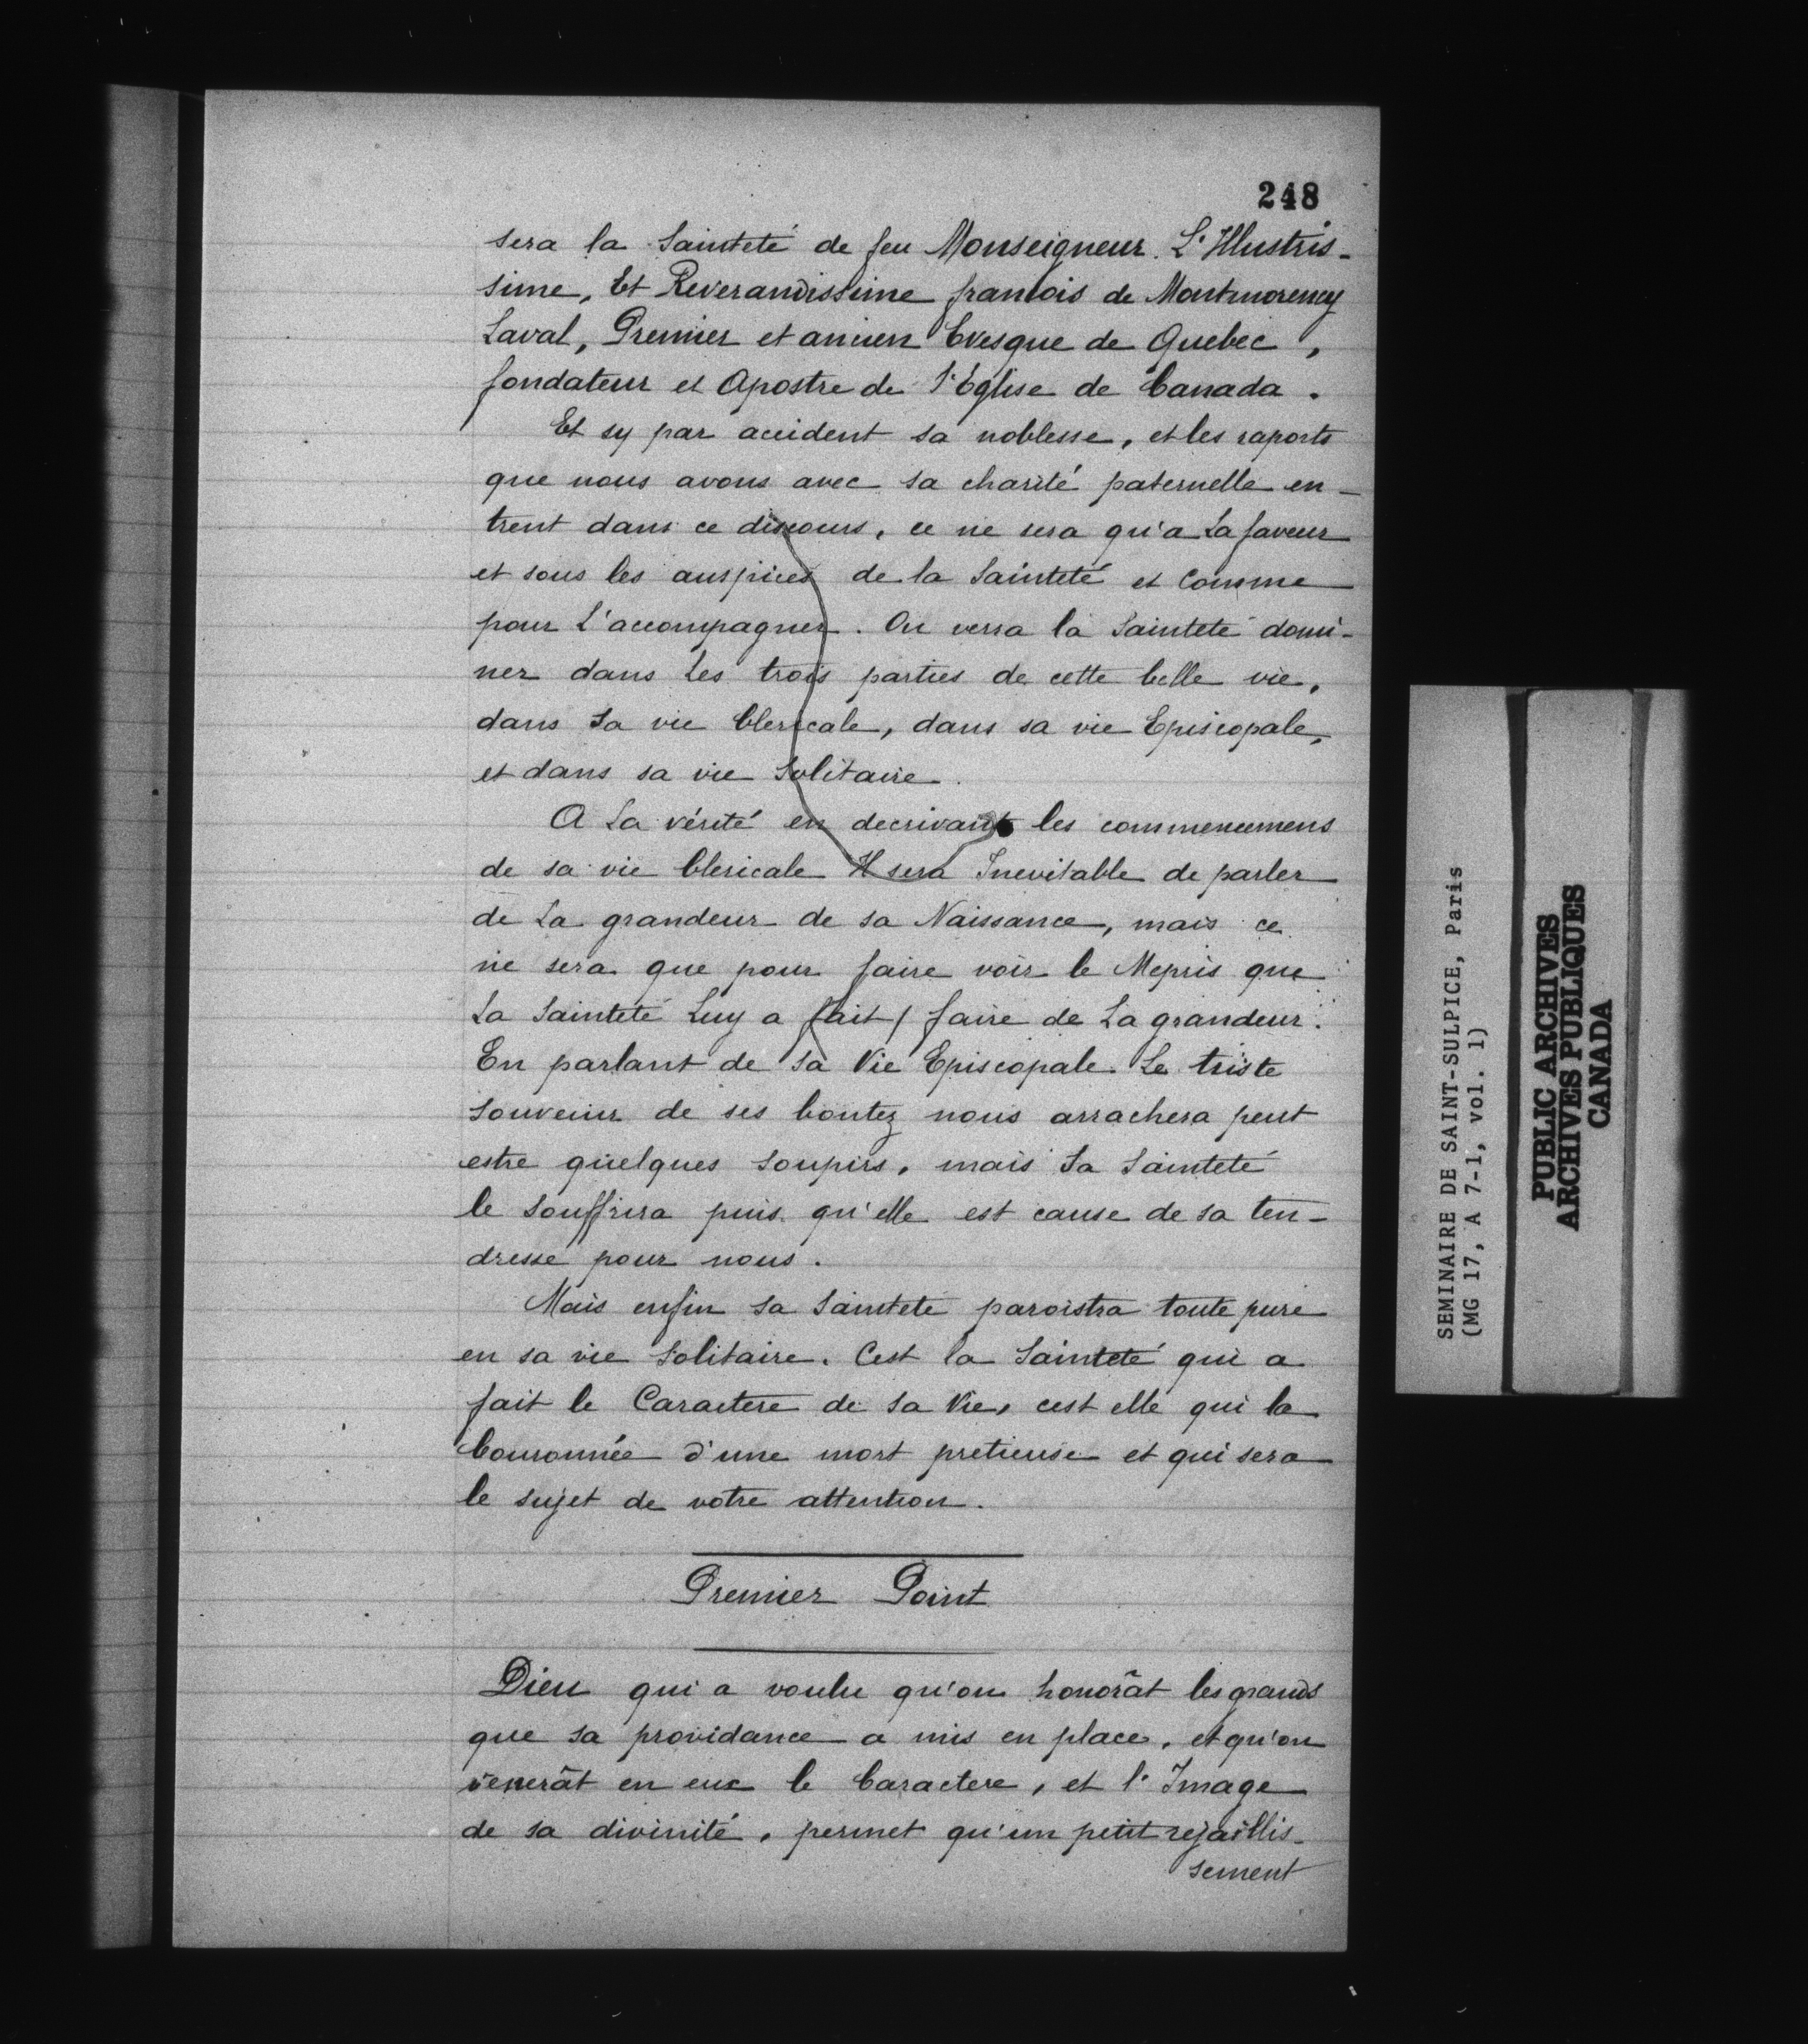 248
sera la Sainteté de feu Monseigneur. L'Illustris-
sime, Et Reverandissime francois de Montmorency
Laval, Premier et ancien Evesque de Quebec,
fondateur et Apostre de l'Eglise de Canada.
Et sy par accident sa noblesse, et les raports
que nous avons avec sa charité paternelle en-
trent dans ce discours, ce ne sera qu'a La faveur
et sous les auspices de la Sainteté et Comme
pour L'accompagner. On verra la Sainteté domi-
ner dans Les trois parties de cette belle vie,
dans Sa vie Clericale, dans sa vie Episcopale,
et dans sa vie Solitaire.
A La vérité en decrivant les commencemens
de sa vie Clericale Il sera Inevitable de parler
de La grandeur de sa Naissance, mais ce
ne sera que pour faire voir le Mepris que
La Sainteté Luy a fait / faire de La grandeur.
En parlant de Sa Vie Episcopale. Le triste
Souvenir de ses bontez nous arrachera peut
estre quelques Soupirs, mais Sa Sainteté
le Souffrira puis qu'elle est cause de sa ten-
dresse pour nous.
Mais enfin Sa Sainteté paroistra toute pure
en sa vie Solitaire. Cest la Sainteté qui a
fait le Caractere de Sa Vie, cest elle qui la
Couronnée d'une mort pretieuse et qui sera
le sujet de votre attention.
Premier Point
Dieu qui a voulu qu'on honorât les grands
que sa providance a mis en place, et qu'on
venerât en eux le Caractere, et l'Image
de sa divinité, permet qu'un petit rejaillis-
sement
SEMINAIRE DE SAINT-SULPICE, Paris
(MG 17, A 7-1, vol. 1)
PUBLIC ARCHIVES
ARCHIVES PUBLIQUES
CANADA